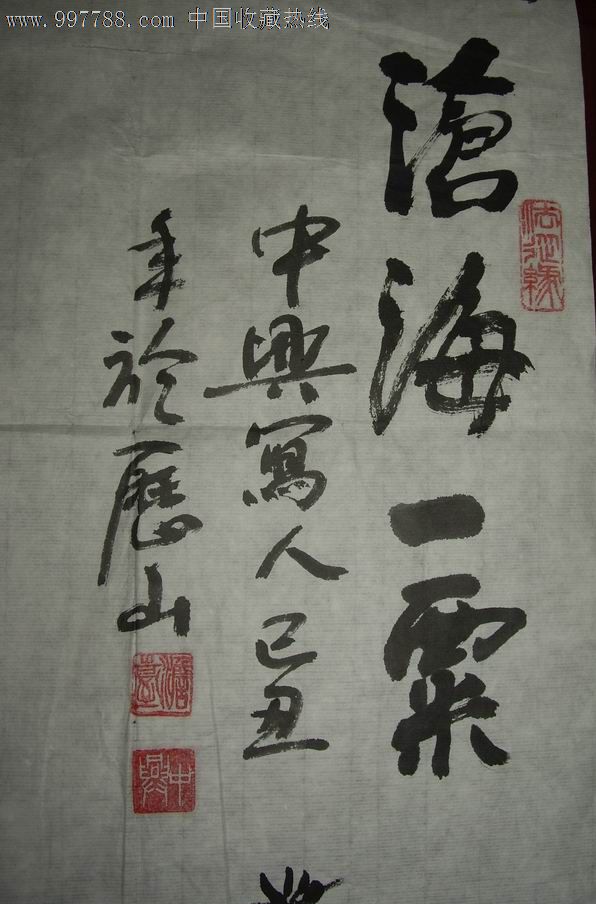 www.997788.com 中国收藏热线
滄海一粟
中興寫人己丑
年於歷山
中興